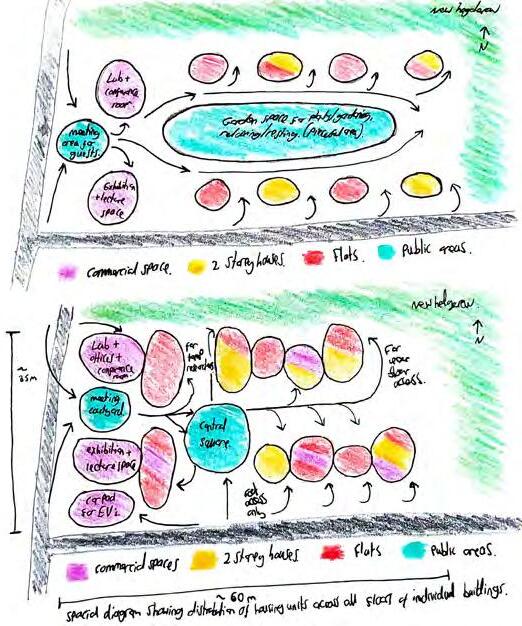 new hedgerow
N
Lab +
conference
room
meeting
area for
guests.
Garden space for plants/gardening,
relaxing/resting. (Peaceful area)
Exhibition
+ lecture
space
commercial space.
2 storey houses.
Flats.
Public areas.
new hedgerow.
N
~
35m
Lab +
offices +
conference
room
For
temp
researchers
For
user
access.
meeting
courtyard
Central
square
exhibition +
lecture space
car pod
for EV's
access
only
commercial spaces
2 storey houses
Flats
Public areas.
~ 60 m
spacial diagram showing distribution of housing units across all floors of individual buildings.